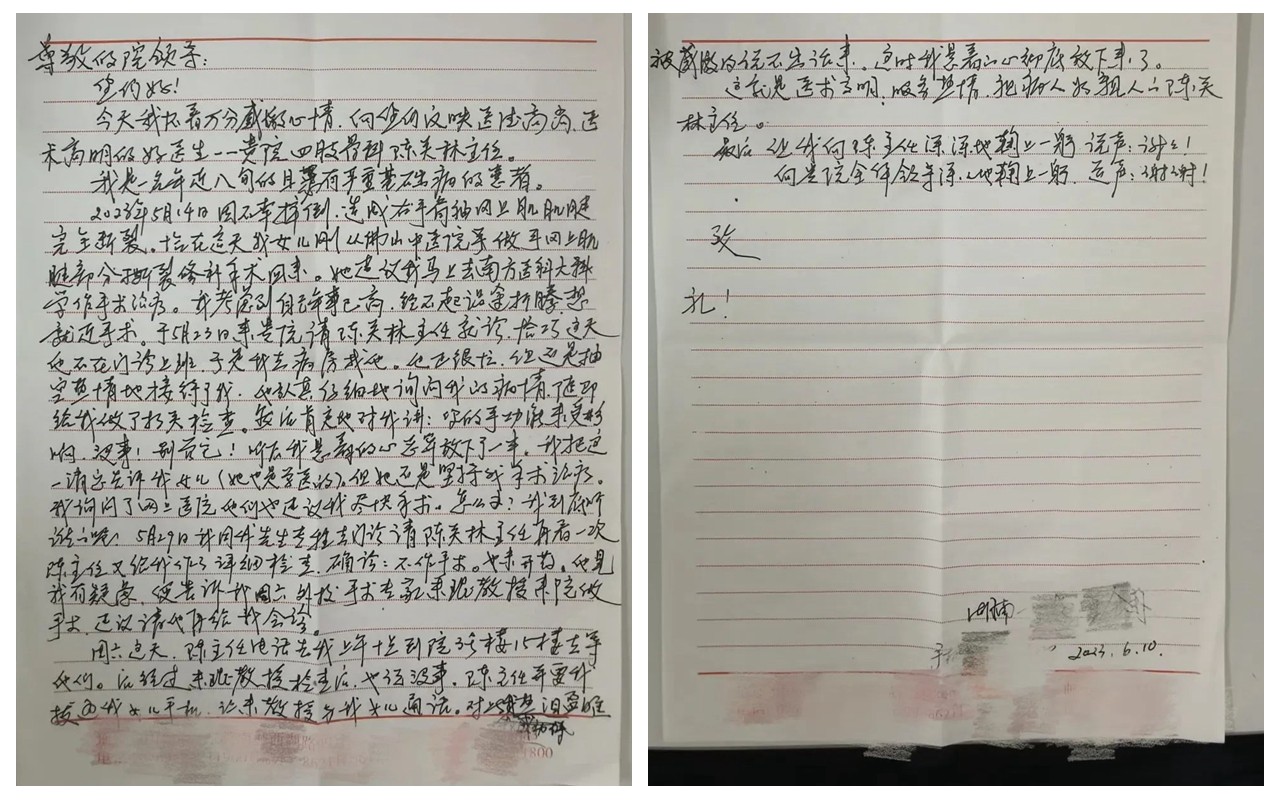 尊敬的院领导：
您们好！
今天我怀着万分感激心情，向您们反映医德高尚、医
术高明的好医生---贵院四肢骨科陈关林主任。
我是一名年近八旬的且患有严重基础病的患者。
2023年5月14日因不幸摔倒，造成右手肩袖冈上肌肌腱
完全断裂。恰在这天我女儿刚从佛山中医院等做耳冈上肌
腱部分撕裂修补手术回来。她建议我马上去南方医科大
学作手术治疗。我考虑到自己年事已高，经不起沿途折腾，想
就近手术。于5月23日来贵院请陈关林主任就诊，恰巧这天
他不在门诊上班，于是我去病房找他。他也很忙，但还是抽
空热情地接待了我。他认真仔细地询问我的病情，随即
给我做了相关检查。最后肯定地对我讲：你的手功能未受影
响，没事！别管它！听后我悬着的心总算放下了一半。我把这
一情况告诉我女儿（她也是学医的），但她还是坚持我手术治疗。
我询问了网上医院他们也建议我尽快手术。怎么办？我到底听
谁的呢？5月29日我同我先生专程去门诊请陈关林主任再看一次
陈主任又给我作了详细检查，确诊：不作手术。也未开药。他见
我有疑虑，便告诉我周六外技手术专家来院教授来院做
手术，建议请他再给我会诊。
周六这天，陈主任电话告我上午十点到院3号楼15楼去等
他们。后经过教授检查后，也说没事。陈主任并要我
拨通我女儿手机，让教授与我女儿通话。对此我热泪盈眶
被感激的说不出话来。这时我悬着的心彻底放下来了。
这就是医术高明，服务热情，把病人当亲人的陈关
林主任。
最后让我向陈主任深深地鞠上一躬 说声：谢谢！
向贵院全体领导深深地鞠上一躬，道声：谢谢！
致
礼！
湖南
2023.6.10.
800